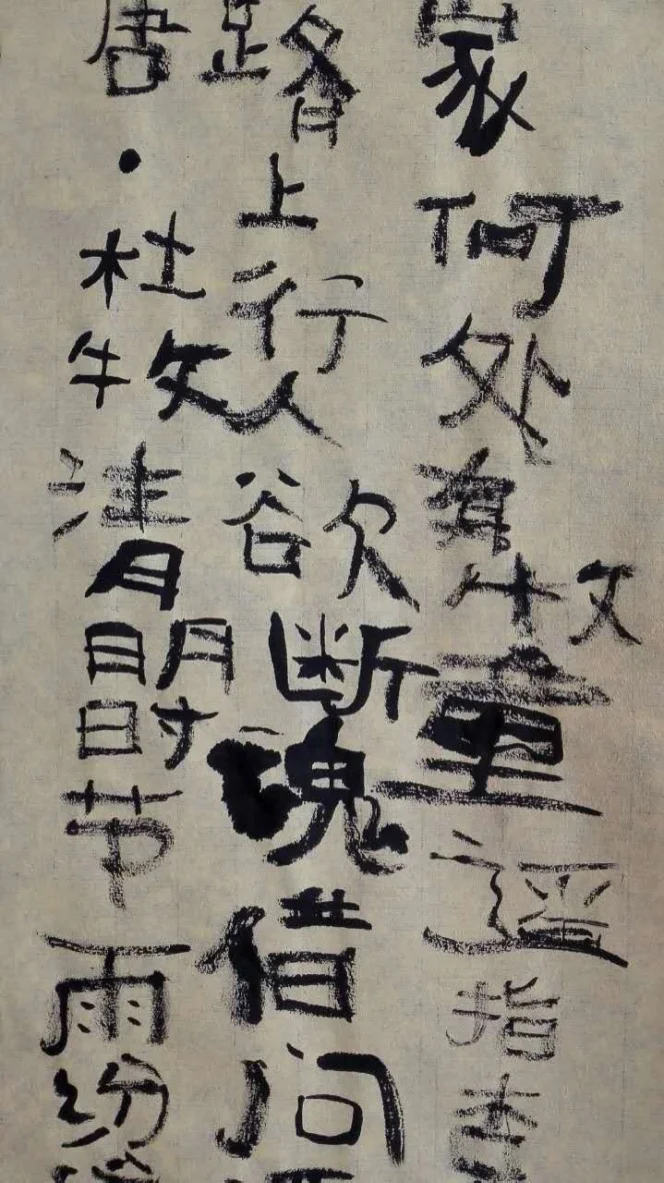 唐·杜牧清明时节雨纷
路上行人欲断魂借问
家何处有牧童遥指杏